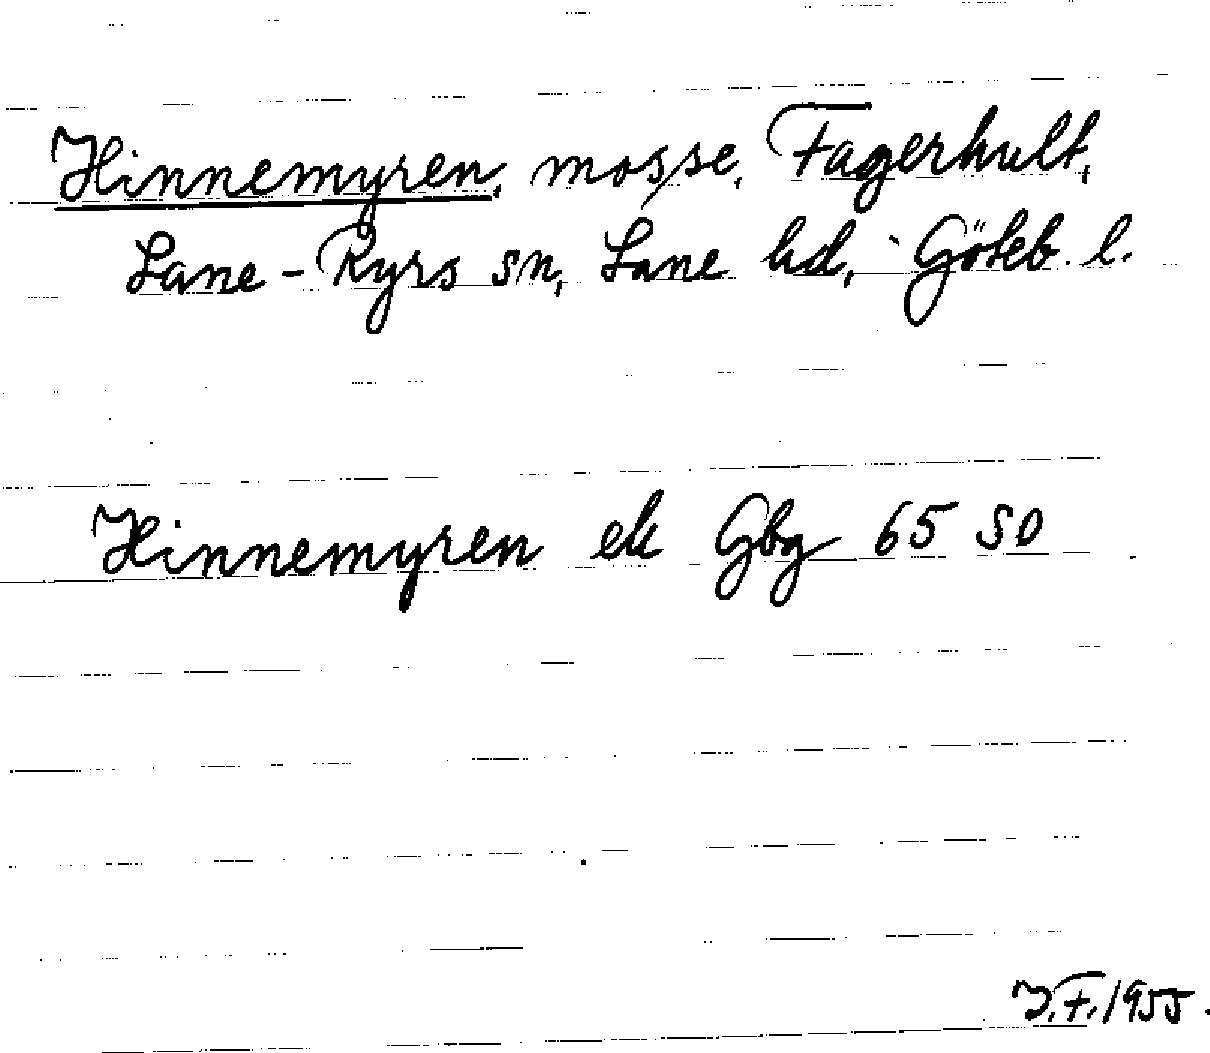 Hinnemyren, mosse, Fagerhult,
Lane-Ryrs sn, Lane hd, Göteb. l.
Hinnemyren ek Gbg 65 SO
J.F. 1955.